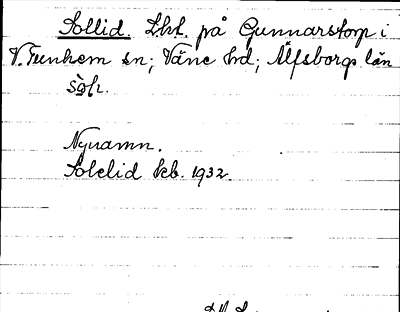 Sollid. Lht. på Gunnarstorp i
V. Tunhem sn; Väne hd; Älfsborgs län
Nynamn.
Solelid kb. 1932.